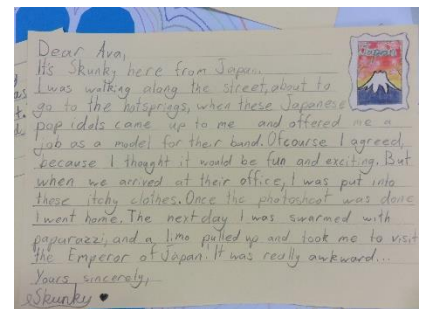 Dear Ava,
It's Skunky here from Japan.
I was walking along the street, about to
go to the hotsprings, when these Japanese
pop idols came up to me and offered me a
job as a model for their band. Ofcourse I agreed,
because I thought it would be fun and exciting. But
when we arrived at their office, I was put into
these itchy clothes. Once the photoshoot was done
I went home. The next day I was swarmed with
paparazzi, and a limo pulled up and took me to visit
the Emperor of Japan. It was really awkward...
Yours sincerely,
Skunky